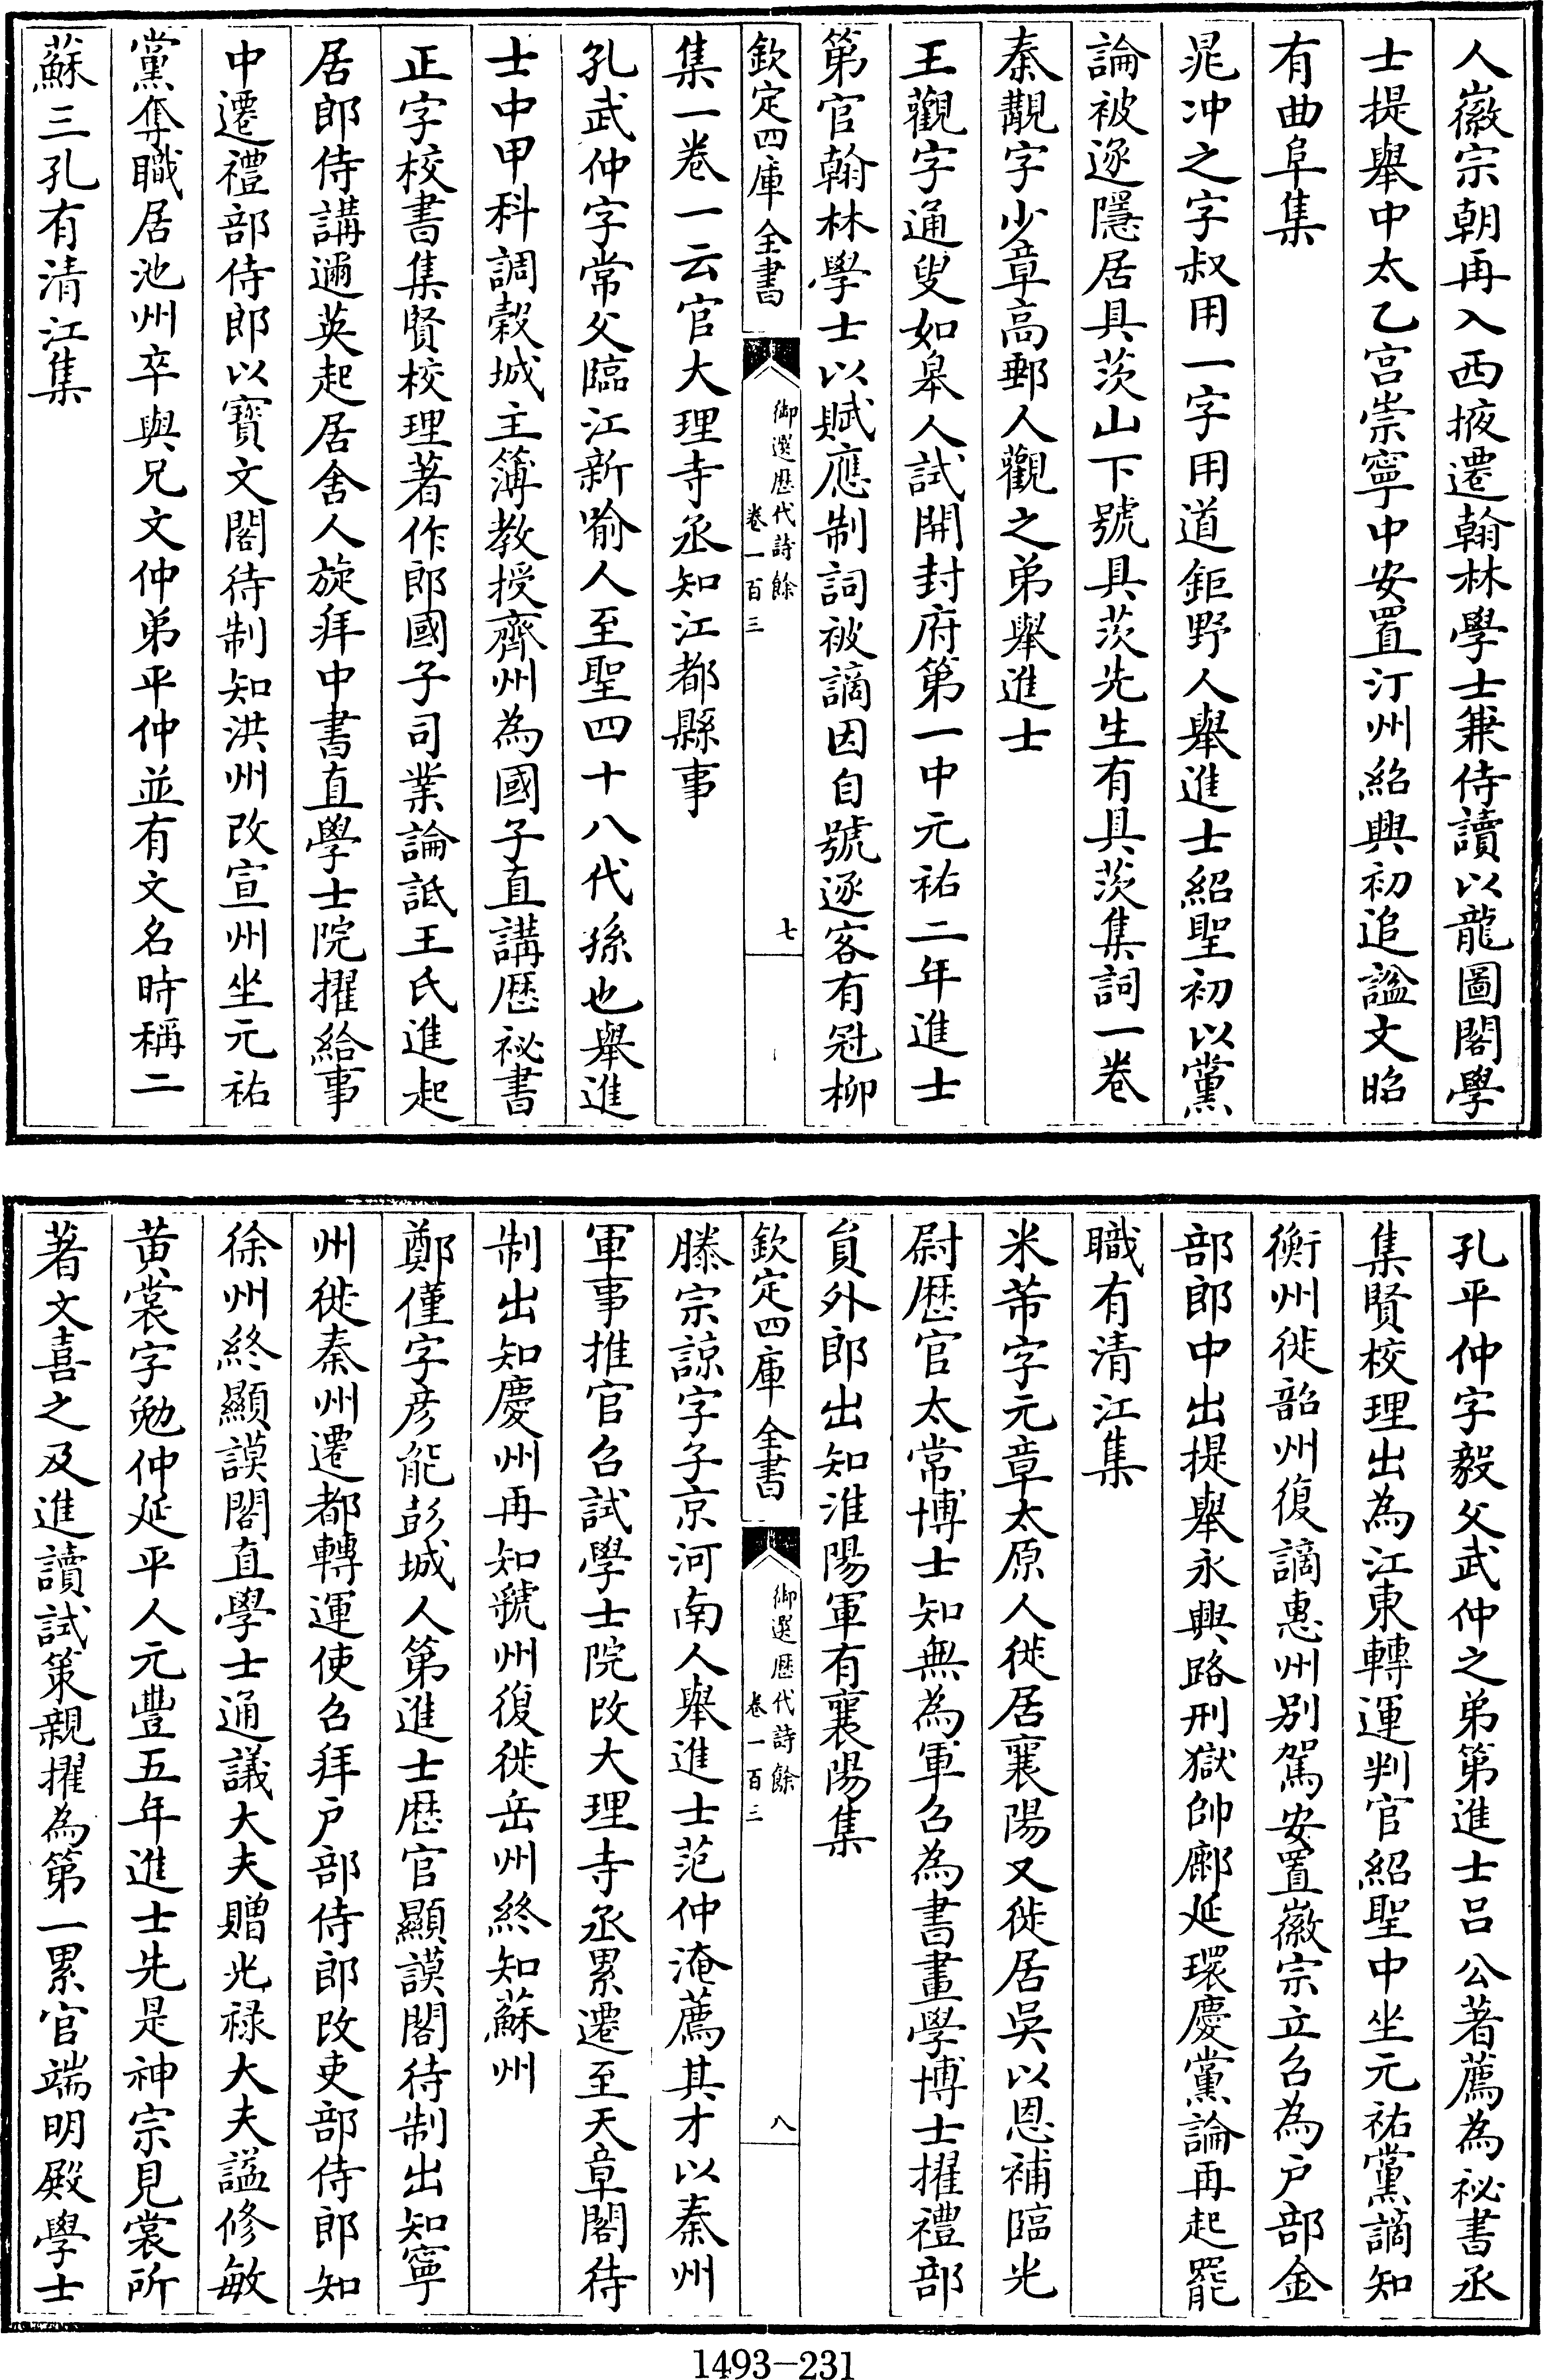 人徽宗朝再入西掖遷翰林學士兼侍讀以龍圖閣學
士提舉中太乙宮崇寧中安置汀州紹興初追諡文昭
有曲阜集
晁冲之字叔用一字用道鉅野人舉進士紹聖初以黨
論被逐隱居具茨山下號具茨先生有具茨集詞一卷
秦覯字少章高郵人觀之弟舉進士
王觀字通叟如皋人試開封府第一中元祐二年進士
第官翰林學士以賦應制詞被謫因自號逐客有冠柳
欽定四庫全書
御選歷代詩餘
卷一百三
七
集一卷一云官大理寺丞知江都縣事
孔武仲字常父臨江新喻人至聖四十八代孫也舉進
士中甲科調穀城主簿教授齊州為國子直講歷祕書
正字校書集賢校理著作郎國子司業論詆王氏進起
居郎侍講邇英起居舍人旋拜中書直學士院擢給事
中遷禮部侍郎以寶文閣待制知洪州改宣州坐元祐
黨奪職居池州卒與兄文仲弟平仲並有文名時稱二
蘇三孔有清江集
孔平仲字毅父武仲之弟第進士呂公著薦為祕書丞
集賢校理出為江東轉運判官紹聖中坐元祐黨謫知
衡州徙韶州復謫惠州别駕安置徽宗立召為户部金
部郎中出提舉永興路刑獄帥鄜延環慶黨論再起罷
職有清江集
米芾字元章太原人徙居襄陽又徙居吳以恩補臨光
尉歷官太常博士知無為軍召為書畫學博士擢禮部
員外郎出知淮陽軍有襄陽集
欽定四庫全書
御選歷代詩餘
卷一百三
八
滕宗諒字子京河南人舉進士范仲淹薦其才以秦州
軍事推官召試學士院改大理寺丞累遷至天章閣待
制出知慶州再知虢州復徙岳州終知蘇州
鄭僅字彦能彭城人第進士歷官顯謨閣待制出知寧
州徙秦州遷都轉運使召拜户部侍郎改吏部侍郎知
徐州終顯謨閣直學士通議大夫贈光祿大夫諡修敏
黄裳字勉仲延平人元豐五年進士先是神宗見裳所
著文喜之及進讀試策親擢為第一累官端明殿學士
1493-231